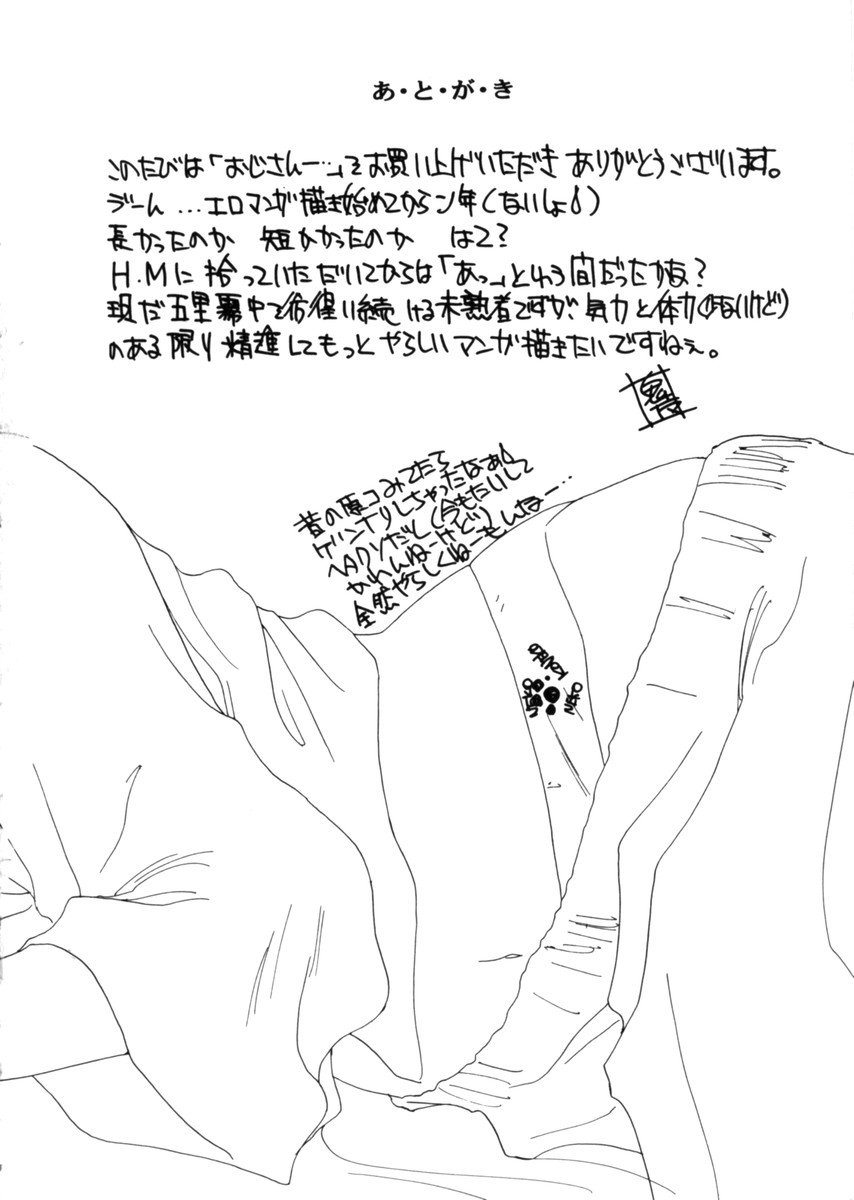 あ・と・が・き
このたびは「おじさんー…」をお買い上げいただき ありがとうございます。
うーん …エロマンガ描き始めてからン年(ないしょ)
長かったのか 短かかったのか はて?
H.Mに拾っていただいてからは「あっ」という間だったかな?
現だ五里霧中で彷徨い続ける未熟者ですが、気力と体力(はないけど)
のある限り精進してもっとやらしいマンガ描きたいですねぇ。
昔の原コみてたら
ゲンナリしちゃったなぁ
ヘタクソだと(今もたいして
かわんねーけど)
全然やらしくねーもんなー…
NEKO